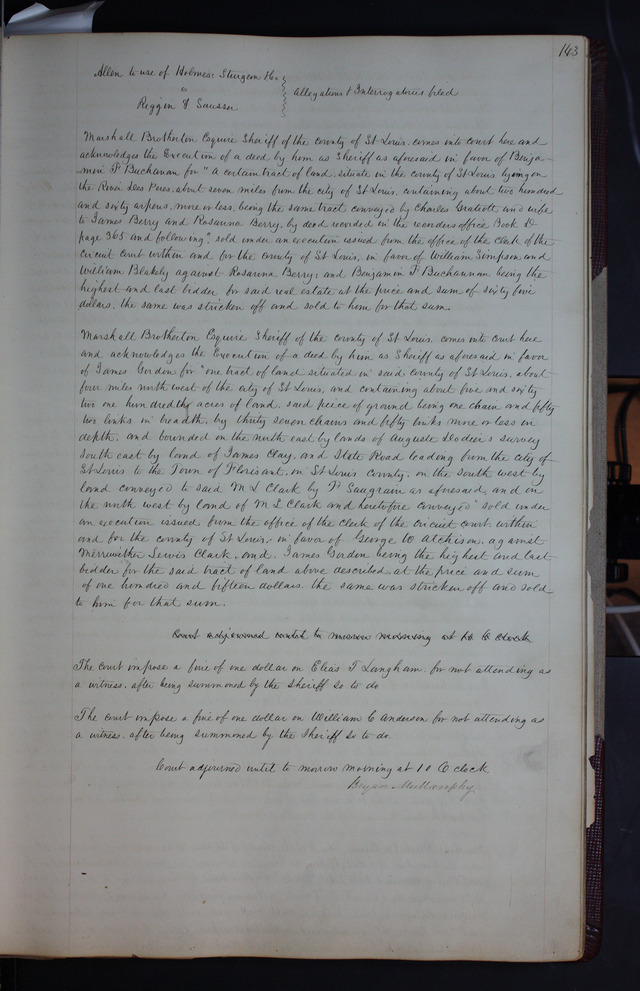 143
Allen to use of Holmes Sturgeon &c
vs
Riggin & Sausser
Allegations & Interrogatories filed
Marshall Brotherton Esquire Sheriff of the county of St Louis. comes into court here and
acknowledges the Execution of a deed by him as Sheriff as aforesaid in favor of Benja-
min F Buchanan for "a certain tract of land. situate in the county of St Louis lying on
the River Des Peres. about seven miles from the city of St Louis, containing about two hundred
and sixty arpens, more or less, being the same tract conveyed by Charles Gratiott and wife
to James Berry and Rosanna Berry, by deed recorded in the recorders office Book D
page 365 and following", sold under an execution issued from the office of the Clerk of the
circuit court within and for the county of St Louis, in favor of William Simpson and
William Blakely against Rosanna Berry: and Benjamin F Buchannan being the
highest and last bidder for said real estate at the price and sum of sixty five
dollars. the same was stricken off and sold to him for that sum.
Marshall Brotherton Esquire Sheriff of the county of St Louis. comes into court here
and acknowledges the Execution of a deed by him as Sheriff as aforesaid in favor
of James Gordon for "one tract of land situated in said county of St Louis, about
four miles north west of the city of St Louis, and containing about five and sixty
two one hundredths acres of land. said peice of ground being one chain and fifty
two links in breadth, by thirty seven chains and fifty links more or less in
depth. and bounded on the north east by lands of Auguste survey
south east by land of James Clay, and State Road leading from the city of
St Louis to the Town of Florisant, in St Louis County, on the south west by
land conveyed to said M L Clark by F Saugrain as aforesaid, and on
the north west by land of M L Clark and heretofore conveyed" sold under
an execution issued from the office of the clerk of the circuit court within
and for the county of St Louis, in favor of George W Atchison, against
Merriwether Lewis Clark, and James Gordon being the highest and last
bidder for the said tract of land above described at the price and sum
of one hundred and fifteen dollars. the same was stricken off and sold
to him for that sum.
Court adjourned untel to morrow morning at 10 O clock
The court impose a fine of one dollar on Elias T Langham. for not attending as
a witness. after being summoned by the sheriff so to do
The court impose a fine of one dollar on William C Anderson for not attending as
a witness. after being summoned by the Sheriff so to do.
Court adjourned untel to morrow morning at 10 O clock
Bryan Mullanphy